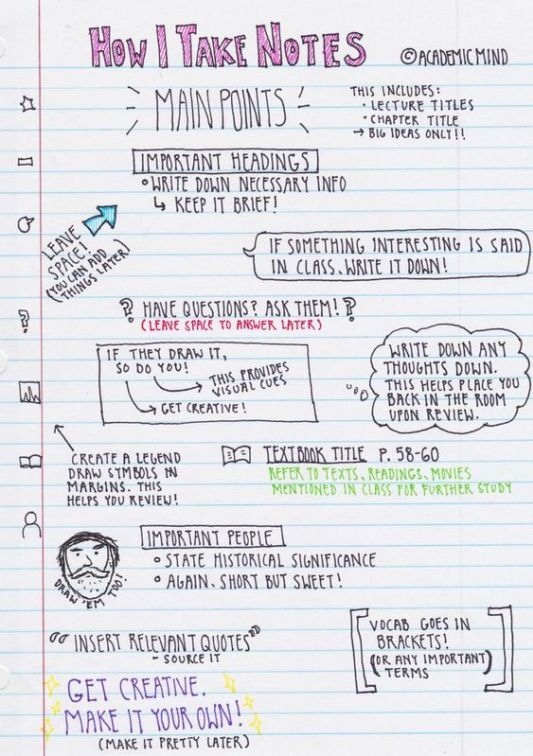 HOW I TAKE NOTES
©ACADEMICMIND
MAIN POINTS
THIS INCLUDES:
• LECTURE TITLES
• CHAPTER TITLE
→ BIG IDEAS ONLY!!
IMPORTANT HEADINGS
• WRITE DOWN NECESSARY INFO
↳ KEEP IT BRIEF!
LEAVE
SPACE!
(YOU CAN ADD
THINGS LATER)
IF SOMETHING INTERESTING IS SAID
IN CLASS, WRITE IT DOWN!
? HAVE QUESTIONS? ASK THEM! ?
(LEAVE SPACE TO ANSWER LATER)
?
IF THEY DRAW IT,
SO DO YOU!
THIS PROVIDES
VISUAL CUES
GET CREATIVE!
WRITE DOWN ANY
THOUGHTS DOWN.
THIS HELPS PLACE YOU
BACK IN THE ROOM
UPON REVIEW.
CREATE A LEGEND
DRAW SYMBOLS IN
MARGINS. THIS
HELPS YOU REVIEW!
TEXTBOOK TITLE P. 58-60
REFER TO TEXTS, READINGS, MOVIES
MENTIONED IN CLASS FOR FURTHER STUDY
IMPORTANT PEOPLE
• STATE HISTORICAL SIGNIFICANCE
• AGAIN, SHORT BUT SWEET!
DRAW 'EM TOO!
"INSERT RELEVANT QUOTES"
- SOURCE IT
VOCAB GOES IN
BRACKETS!
(OR ANY IMPORTANT)
TERMS
GET CREATIVE.
MAKE IT YOUR OWN!
(MAKE IT PRETTY LATER)